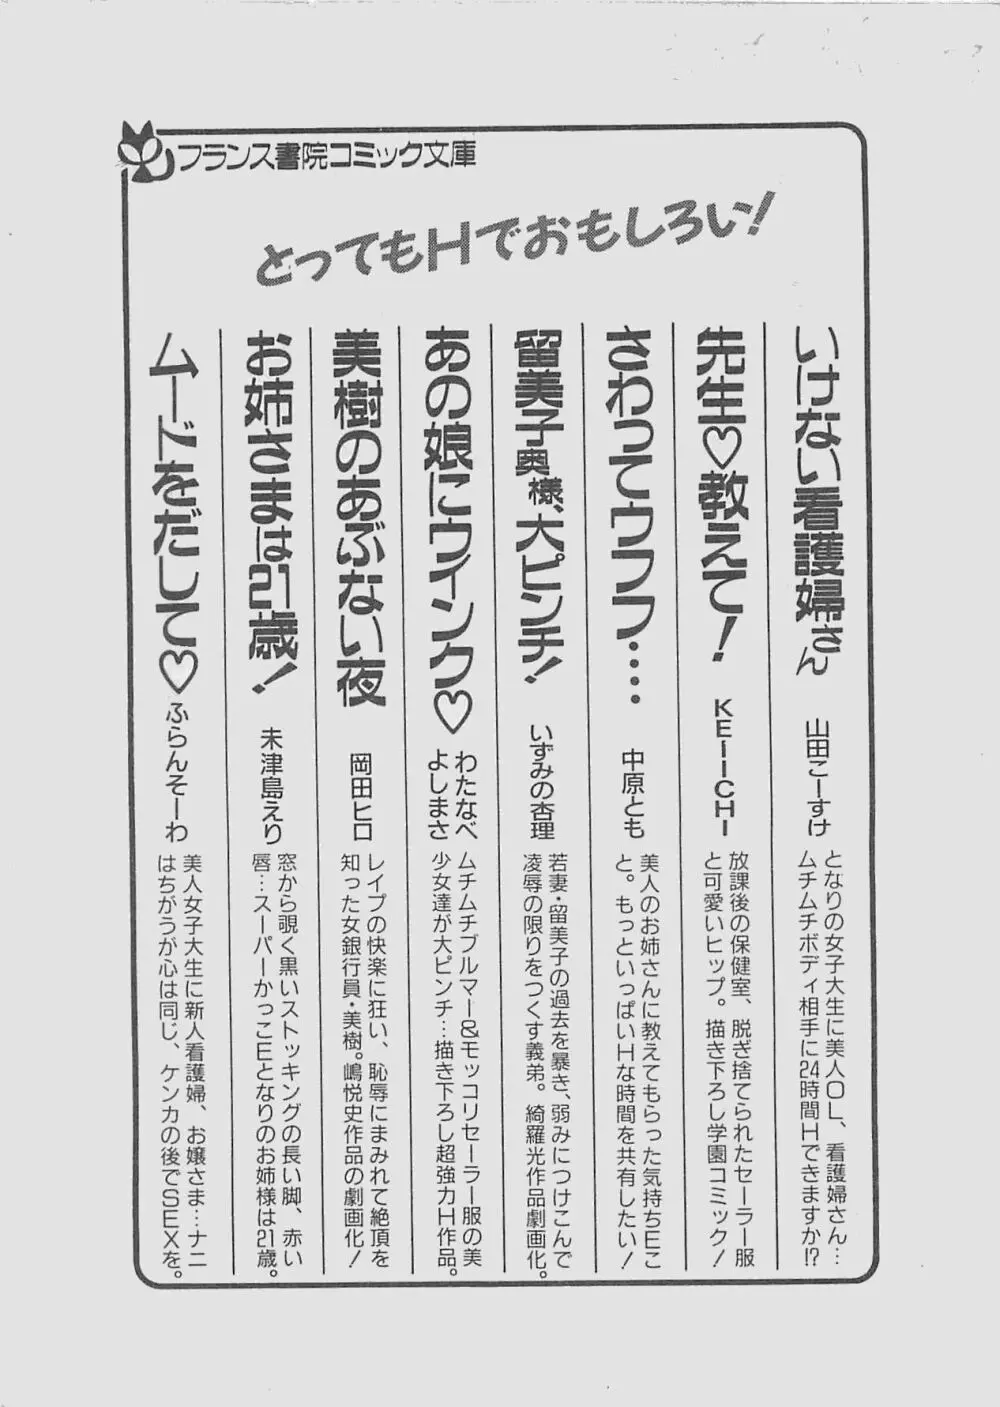 フランス書院コミック文庫
とってもHでおもしろい！
いけない看護婦さん
山田こーすけ
となりの女子大生に美人OL、看護婦さん…
ムチムチボディ相手に24時間Hできますか!?
先生♡教えて！
KEIICHI
放課後の保健室、脱ぎ捨てられたセーラー服
と可愛いヒップ。描き下ろし学園コミック！
さわってウフフ‥‥
中原とも
美人のお姉さんに教えてもらった気持ちEこ
と。もっといっぱいHな時間を共有したい！
留美子奥様、大ピンチ！
いずみの杏理
若妻・留美子の過去を暴き、弱みにつけこんで
凌辱の限りをつくす義弟。綺羅光作品劇画化。
あの娘にウインク♡
わたなべ
よしまさ
ムチムチブルマー&モッコリセーラー服の美
少女達が大ピンチ…描き下ろし超強力H作品。
美樹のあぶない夜
岡田ヒロ
レイプの快楽に狂い、恥辱にまみれて絶頂を
知った女銀行員・美樹。嶋悦史作品の劇画化！
お姉さまは21歳！
未津島えり
窓から覗く黒いストッキングの長い脚、赤い
唇…スーパーかっこEとなりのお姉様は21歳。
ムードをだして♡
ふらんそーわ
美人女子大生に新人看護婦、お嬢さま…ナニ
はちがうが心は同じ、ケンカの後でSEXを。